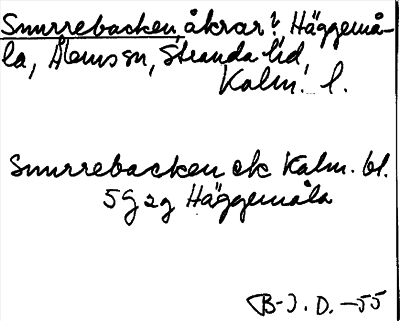 Snurrebacken, åkrar? Häggemå-
la, Ålems sn, Stranda hd,
Kalm. l.
Snurrebacken ek Kalm. bl.
5G 2g Häggemåla
B-J. D. -55